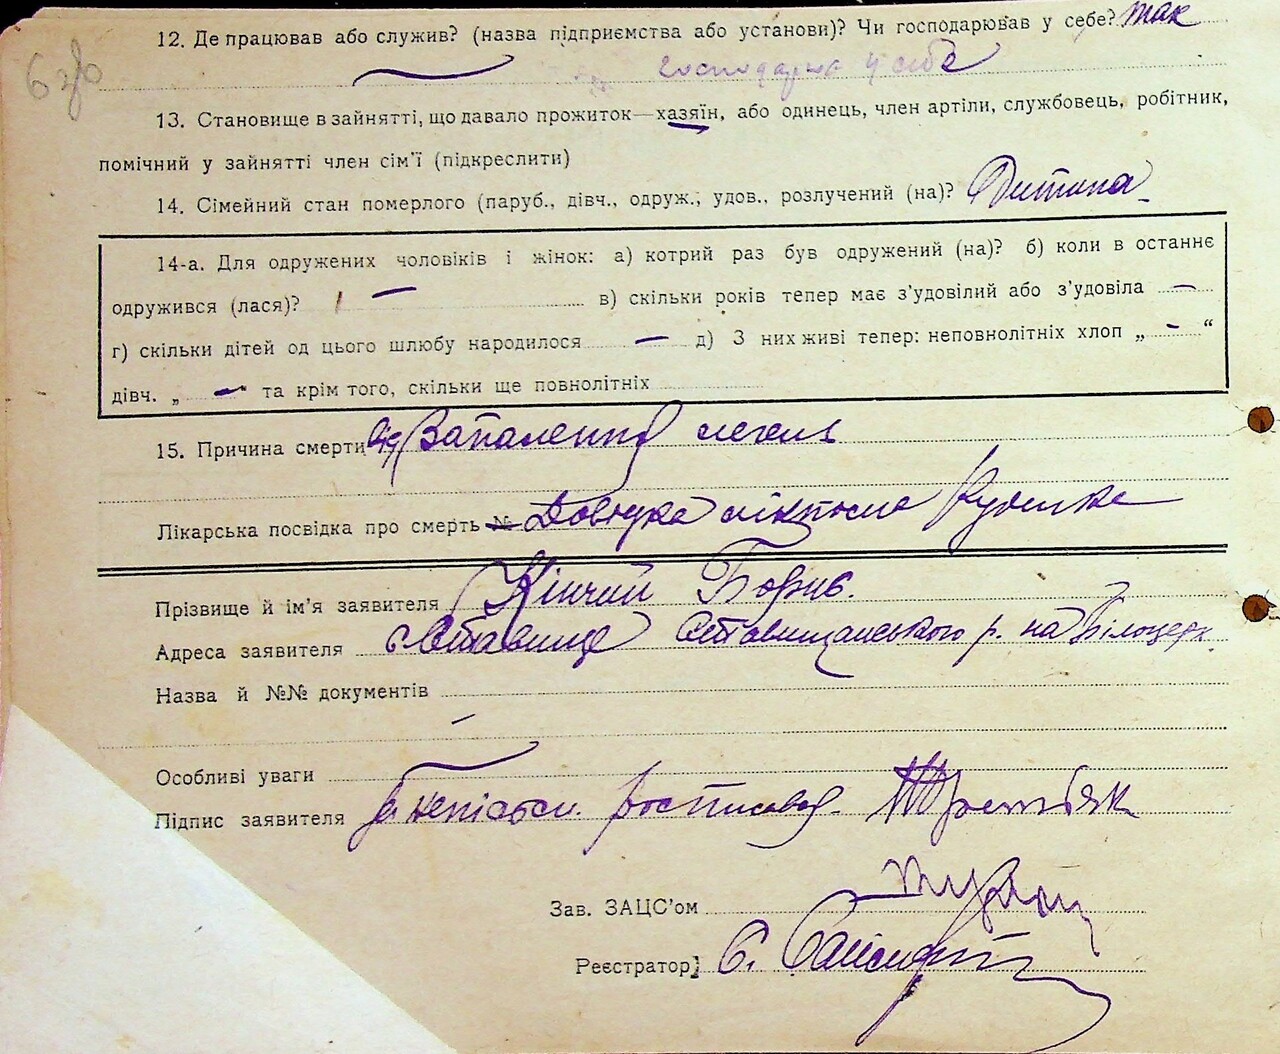 12. Де працював або служив? (назва підприємства або установи)? Чи господарював у себе? так
господарка у себе
13. Становище в зайнятті, що давало прожиток—хазяїн, або одинець, член артілі, службовець, робітник,
помічний у зайнятті член сім’ї (підкреслити)
14. Сімейний стан померлого (паруб., дівч., одруж., удов., розлучений (на)? Дитина
14-а. Для одружених чоловіків і жінок: а) котрий раз був одружений (на)? б) коли в останнє
одружився (лася)? — в) скільки років тепер має з’удовілий або з’удовіла —
г) скільки дітей од цього шлюбу народилося — д) З них живі тепер: неповнолітніх хлоп „ — “
дівч. „ — “ та крім того, скільки ще повнолітніх
15. Причина смерти Від Запалення легень
Лікарська посвідка про смерть № Довідка лікпома
Прізвище й ім’я заявителя Кінчий Борис.
Адреса заявителя с. Ставище Ставищанського р. на Білоцерк.
Назва й №№ документів
—
Особливі уваги
Підпис заявителя неписьм. росписавсь
Зав. ЗАЦС’ом
Реєстратор С.